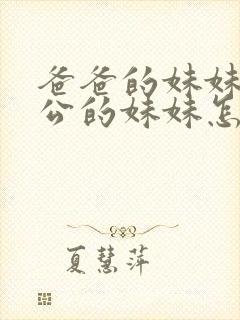 爸爸的妹妹
公的妹妹怎
夏慧萍